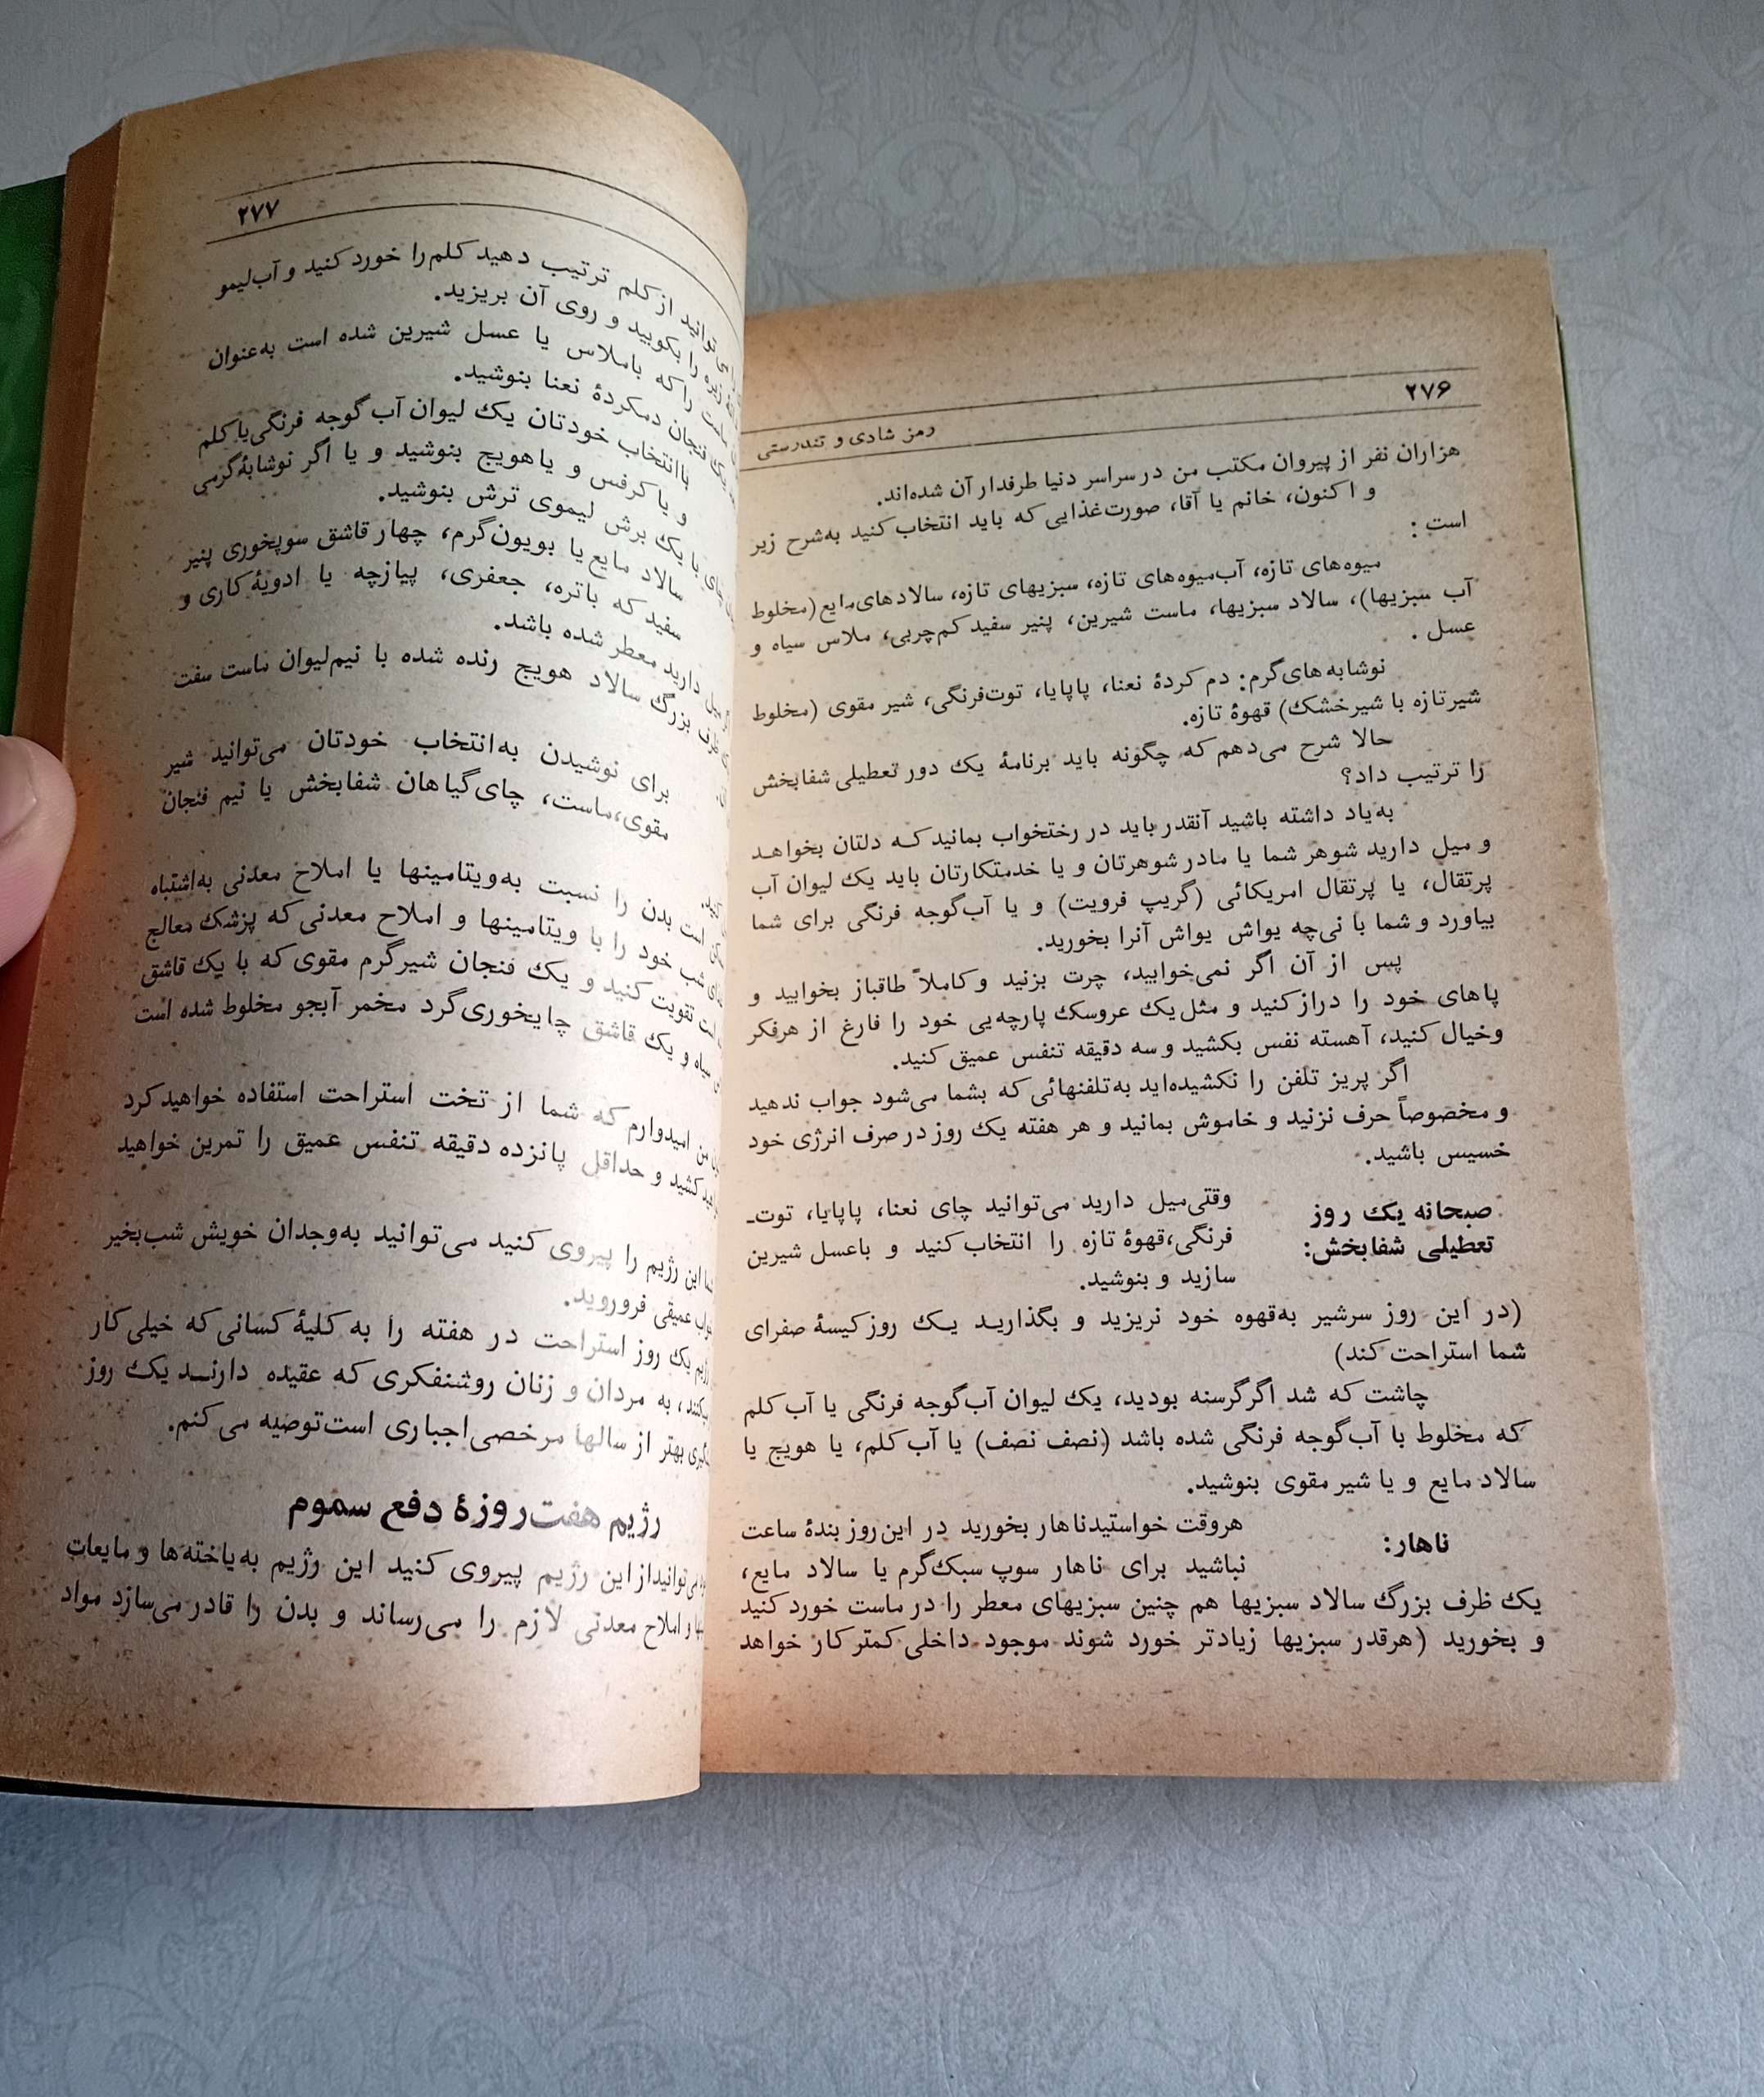 ۲۷۶
رمز شادی و تندرستی
هزاران نفر از پیروان مکتب من در سراسر دنیا طرفدار آن شده‌اند.
و اکنون، خانم یا آقا، صورت‌غذایی که باید انتخاب کنید به‌شرح زیر
است :
میوه‌های تازه، آب‌میوه‌های تازه، سبزیهای تازه، سالادهای‌مایع (مخلوط
آب سبزیها)، سالاد سبزیها، ماست شیرین، پنیر سفید کم‌چربی، ملاس سیاه و
عسل .
نوشابه‌های‌گرم: دم کردهٔ نعنا، پاپایا، توت‌فرنگی، شیر مقوی (مخلوط
شیرتازه با شیرخشک) قهوهٔ تازه.
حالا شرح می‌دهم که چگونه باید برنامهٔ یک دور تعطیلی شفابخش
را ترتیب داد؟
به‌یاد داشته باشید آنقدر باید در رختخواب بمانید کـه دلتان بخواهـد
و میل دارید شوهر شما یا مادر شوهرتان و یا خدمتکارتان باید یک لیوان آب
پرتقال، یا پرتقال امریکائی (گریپ فرویت) و یا آب‌گوجه فرنگی برای شما
بیاورد و شما با نی‌چه یواش یواش آنرا بخورید.
پس از آن اگر نمی‌خوابید، چرت بزنید و کاملاً طاقباز بخوابید و
پاهای خود را دراز کنید و مثل یک عروسک پارچه‌یی خود را فارغ از هرفکر
وخیال کنید، آهسته نفس بکشید و سه دقیقه تنفس عمیق کنید.
اگر پریز تلفن را نکشیده‌اید به‌تلفنهائی که بشما می‌شود جواب ندهید
و مخصوصاً حرف نزنید و خاموش بمانید و هر هفته یک روز در صرف انرژی خود
خسیس باشید.
صبحانه یک روز
تعطیلی شفابخش:
وقتی‌میل دارید می‌توانید چای نعنا، پاپایا، توت‌ـ
فرنگی،قهوهٔ تازه را انتخاب کنید و باعسل شیرین
سازید و بنوشید.
(در این روز سرشیر به‌قهوه خود نریزید و بگذاریـد یـک روز کیسهٔ صفرای
شما استراحت کند)
چاشت که شد اگر گرسنه بودید، یک لیوان آب‌گوجه فرنگی یا آب کلم
که مخلوط با آب‌گوجه فرنگی شده باشد (نصف نصف) یا آب کلم، یا هویج یا
سالاد مایع و یا شیر مقوی بنوشید.
ناهار:
هروقت خواستیدناهار بخورید در این‌روز بندهٔ ساعت
نباشید برای ناهار سوپ سبک‌گرم یا سالاد مایع،
یک ظرف بزرگ سالاد سبزیها هم چنین سبزیهای معطر را در ماست خورد کنید
و بخورید (هرقدر سبزیها زیادتر خورد شوند موجود داخلی کمتر کار خواهد
۲۷۷
توانید از کلم ترتیب دهید کلم را خورد کنید و آب‌لیمو
زیره را بکوبید و روی آن بریزید.
ماست را که باملاس یا عسل شیرین شده است به‌عنوان
یک فنجان دمکردهٔ نعنا بنوشید.
باانتخاب خودتان یک لیوان آب گوجه فرنگی‌یا کلم
و یا کرفس و یا هویج بنوشید و یا اگر نوشابهٔ‌گرمی
چای با یک برش لیموی ترش بنوشید.
سالاد مایع یا بویون‌گرم، چهار قاشق سوپخوری پنیر
سفید که باتره، جعفری، پیازچه یا ادویهٔ کاری و
میل دارید معطر شده باشد.
ظرف بزرگ سالاد هویج رنده شده با نیم‌لیوان ماست سفت
برای نوشیدن به‌انتخاب خودتان می‌توانید شیر
مقوی،ماست، چای‌گیاهان شفابخش یا نیم فنجان
است بدن را نسبت به‌ویتامینها یا املاح معدنی به‌اشتباه
شب خود را با ویتامینها و املاح معدنی که پزشک معالج
است تقویت کنید و یک فنجان شیرگرم مقوی که با یک قاشق
سیاه و یک قاشق چایخوری‌گرد مخمر آبجو مخلوط شده است
من امیدوارم که شما از تخت استراحت استفاده خواهید کرد
کشید و حداقل پانزده دقیقه تنفس عمیق را تمرین خواهید
این رژیم را پیروی کنید می‌توانید به‌وجدان خویش شب‌بخیر
عمیقی فروروید.
یک روز استراحت در هفته را به کلیهٔ کسانی‌که خیلی‌کار
به مردان و زنان روشنفکری که عقیده دارنـد یک روز
بهتر از سالها مرخصی‌اجباری است‌توصیه می کنم.
رژیم هفت‌روزهٔ دفع سموم
می‌توانیداز این رژیم پیروی کنید این رژیم به‌یاخته‌ها و مایعات
و املاح معدنی لازم را می‌رساند و بدن را قادر می‌سازد مواد